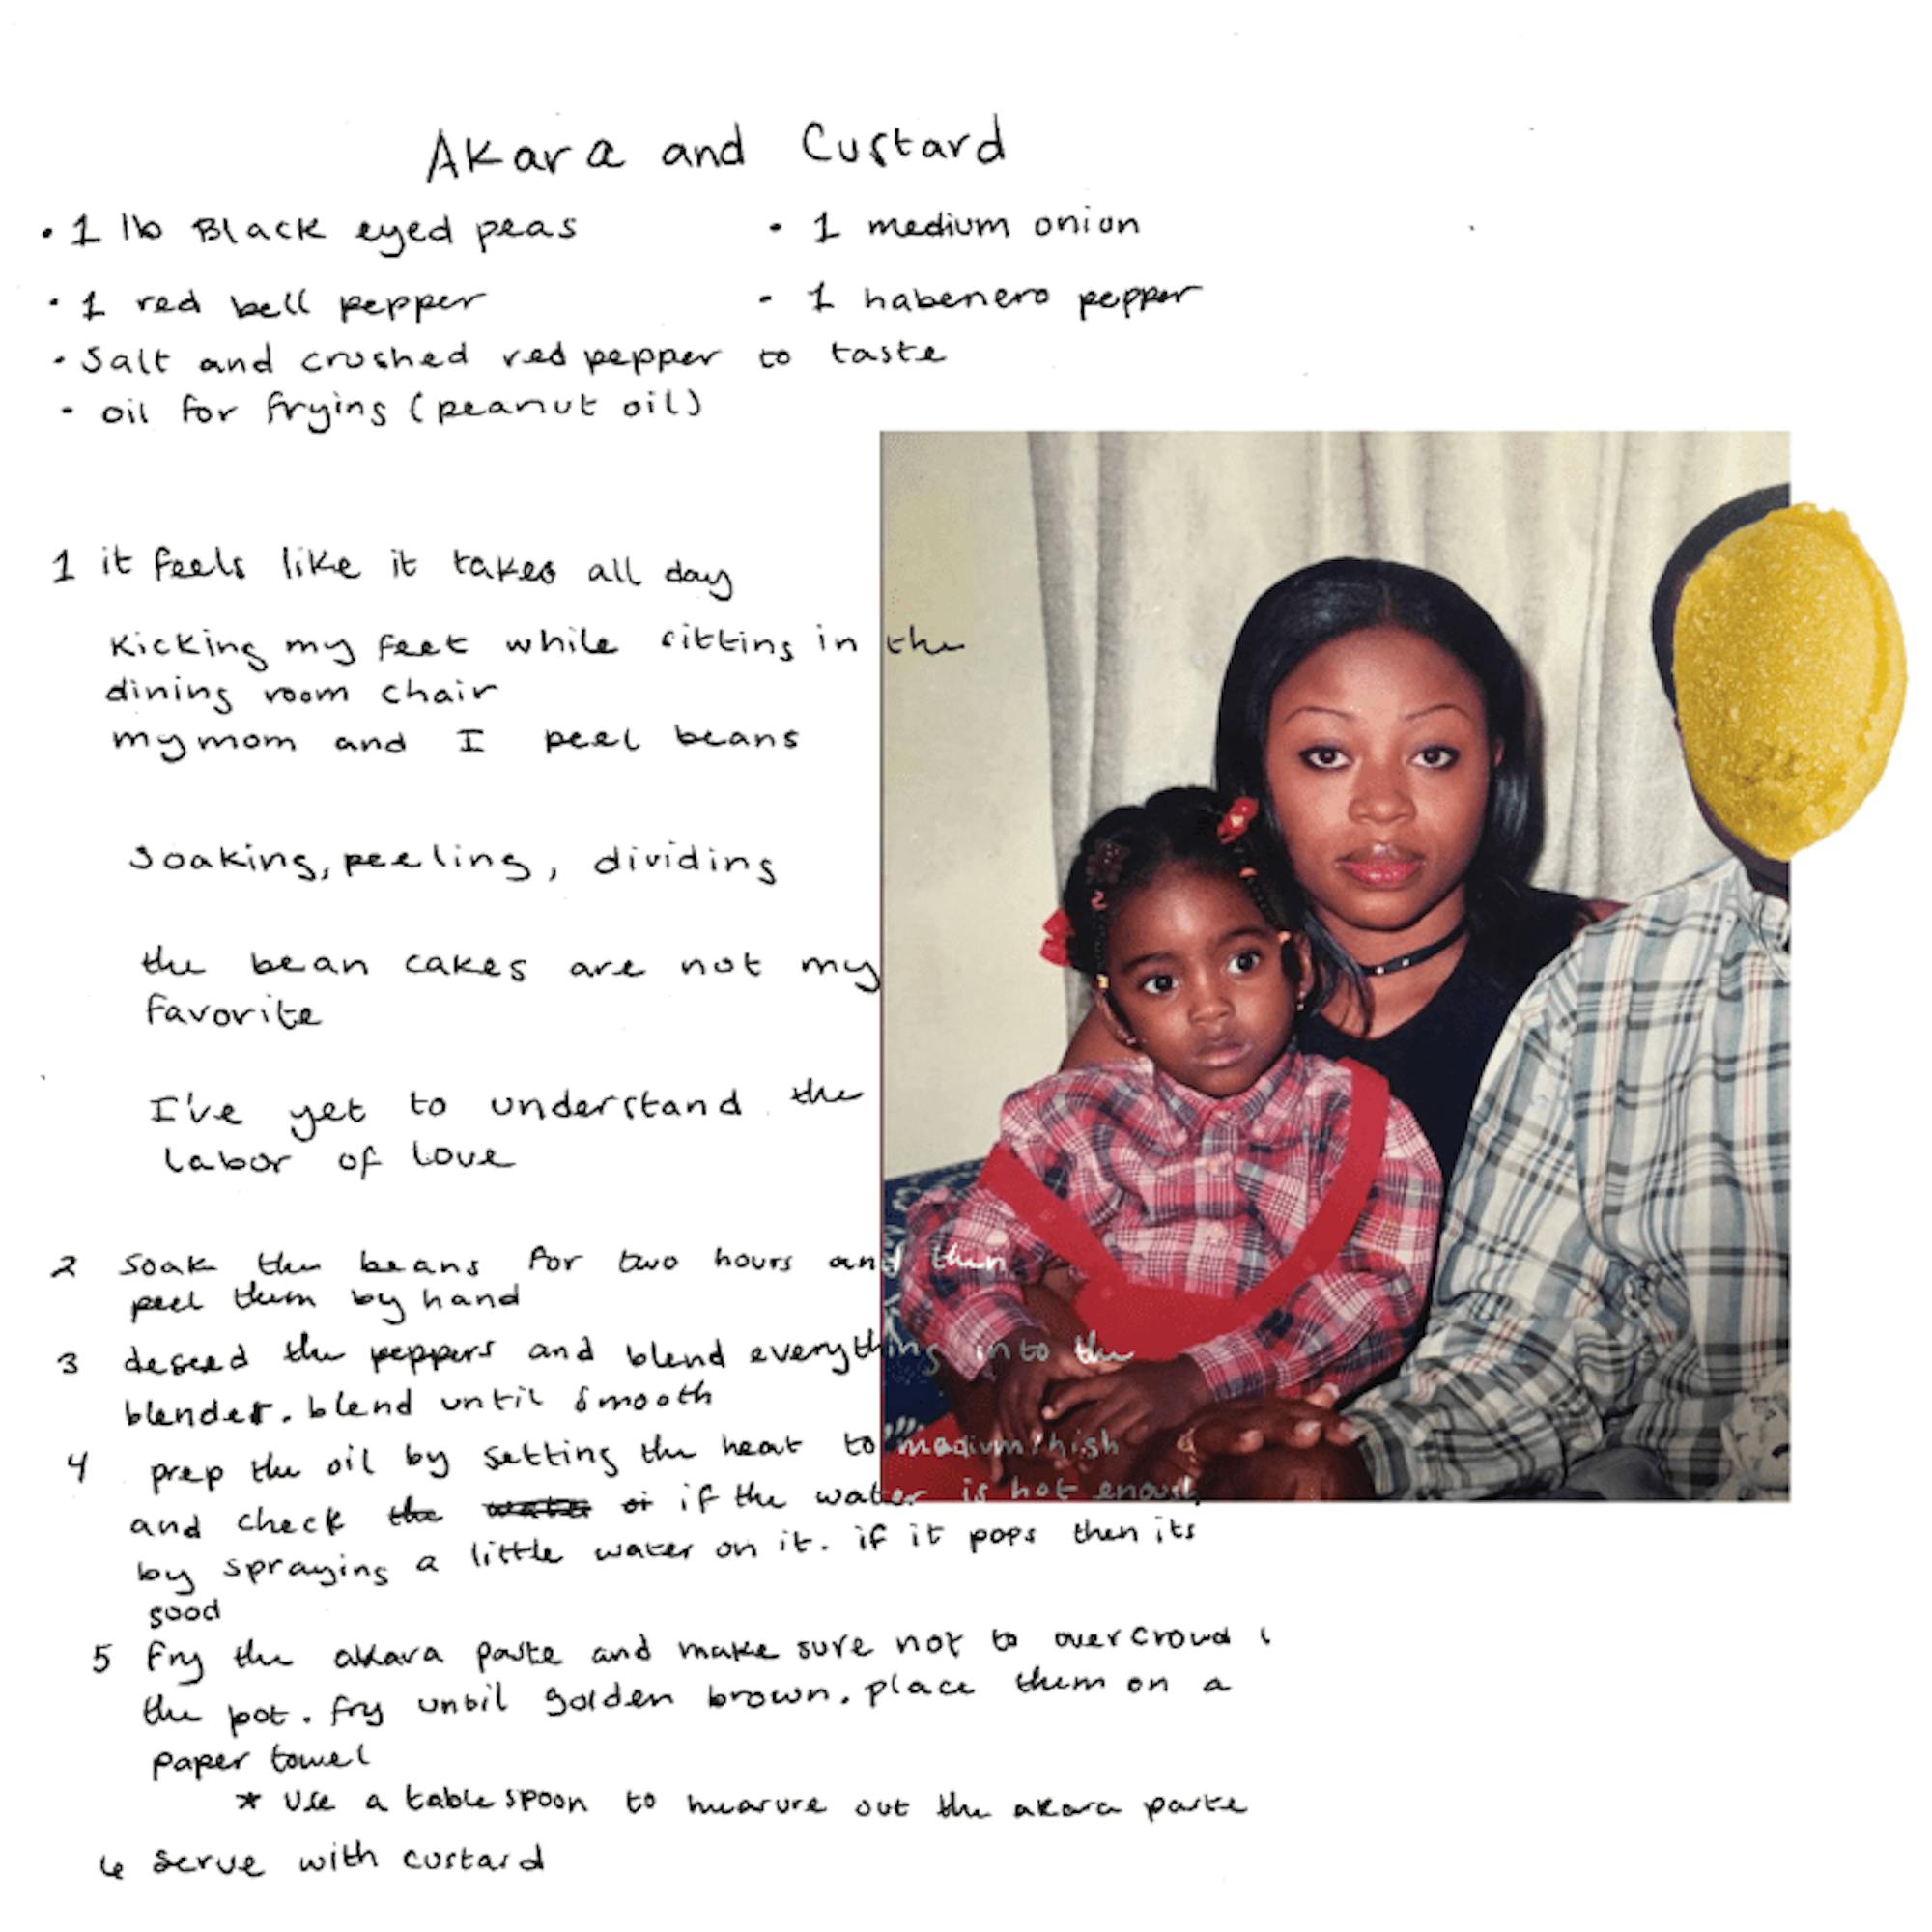 Akara and Custard
• 1 lb Black eyed peas • 1 medium onion
• 1 red bell pepper • 1 habenero pepper
• Salt and crushed red pepper to taste
• oil for frying (peanut oil)
1 it feels like it takes all day
Kicking my feet while sitting in the
dining room chair
my mom and I peel beans
Soaking, peeling, dividing
the bean cakes are not my
favorite
I've yet to understand the
labor of love
2 soak the beans for two hours and then
peel them by hand
3 deseed the peppers and blend everything into the
blender. blend until smooth
4 prep the oil by setting the heat to medium/high
and check the water or if the water is hot enough
by spraying a little water on it. if it pops then its
good
5 fry the akara paste and make sure not to overcrowd
the pot. fry until golden brown. place them on a
paper towel
* Use a table spoon to measure out the akara paste
6 serve with custard